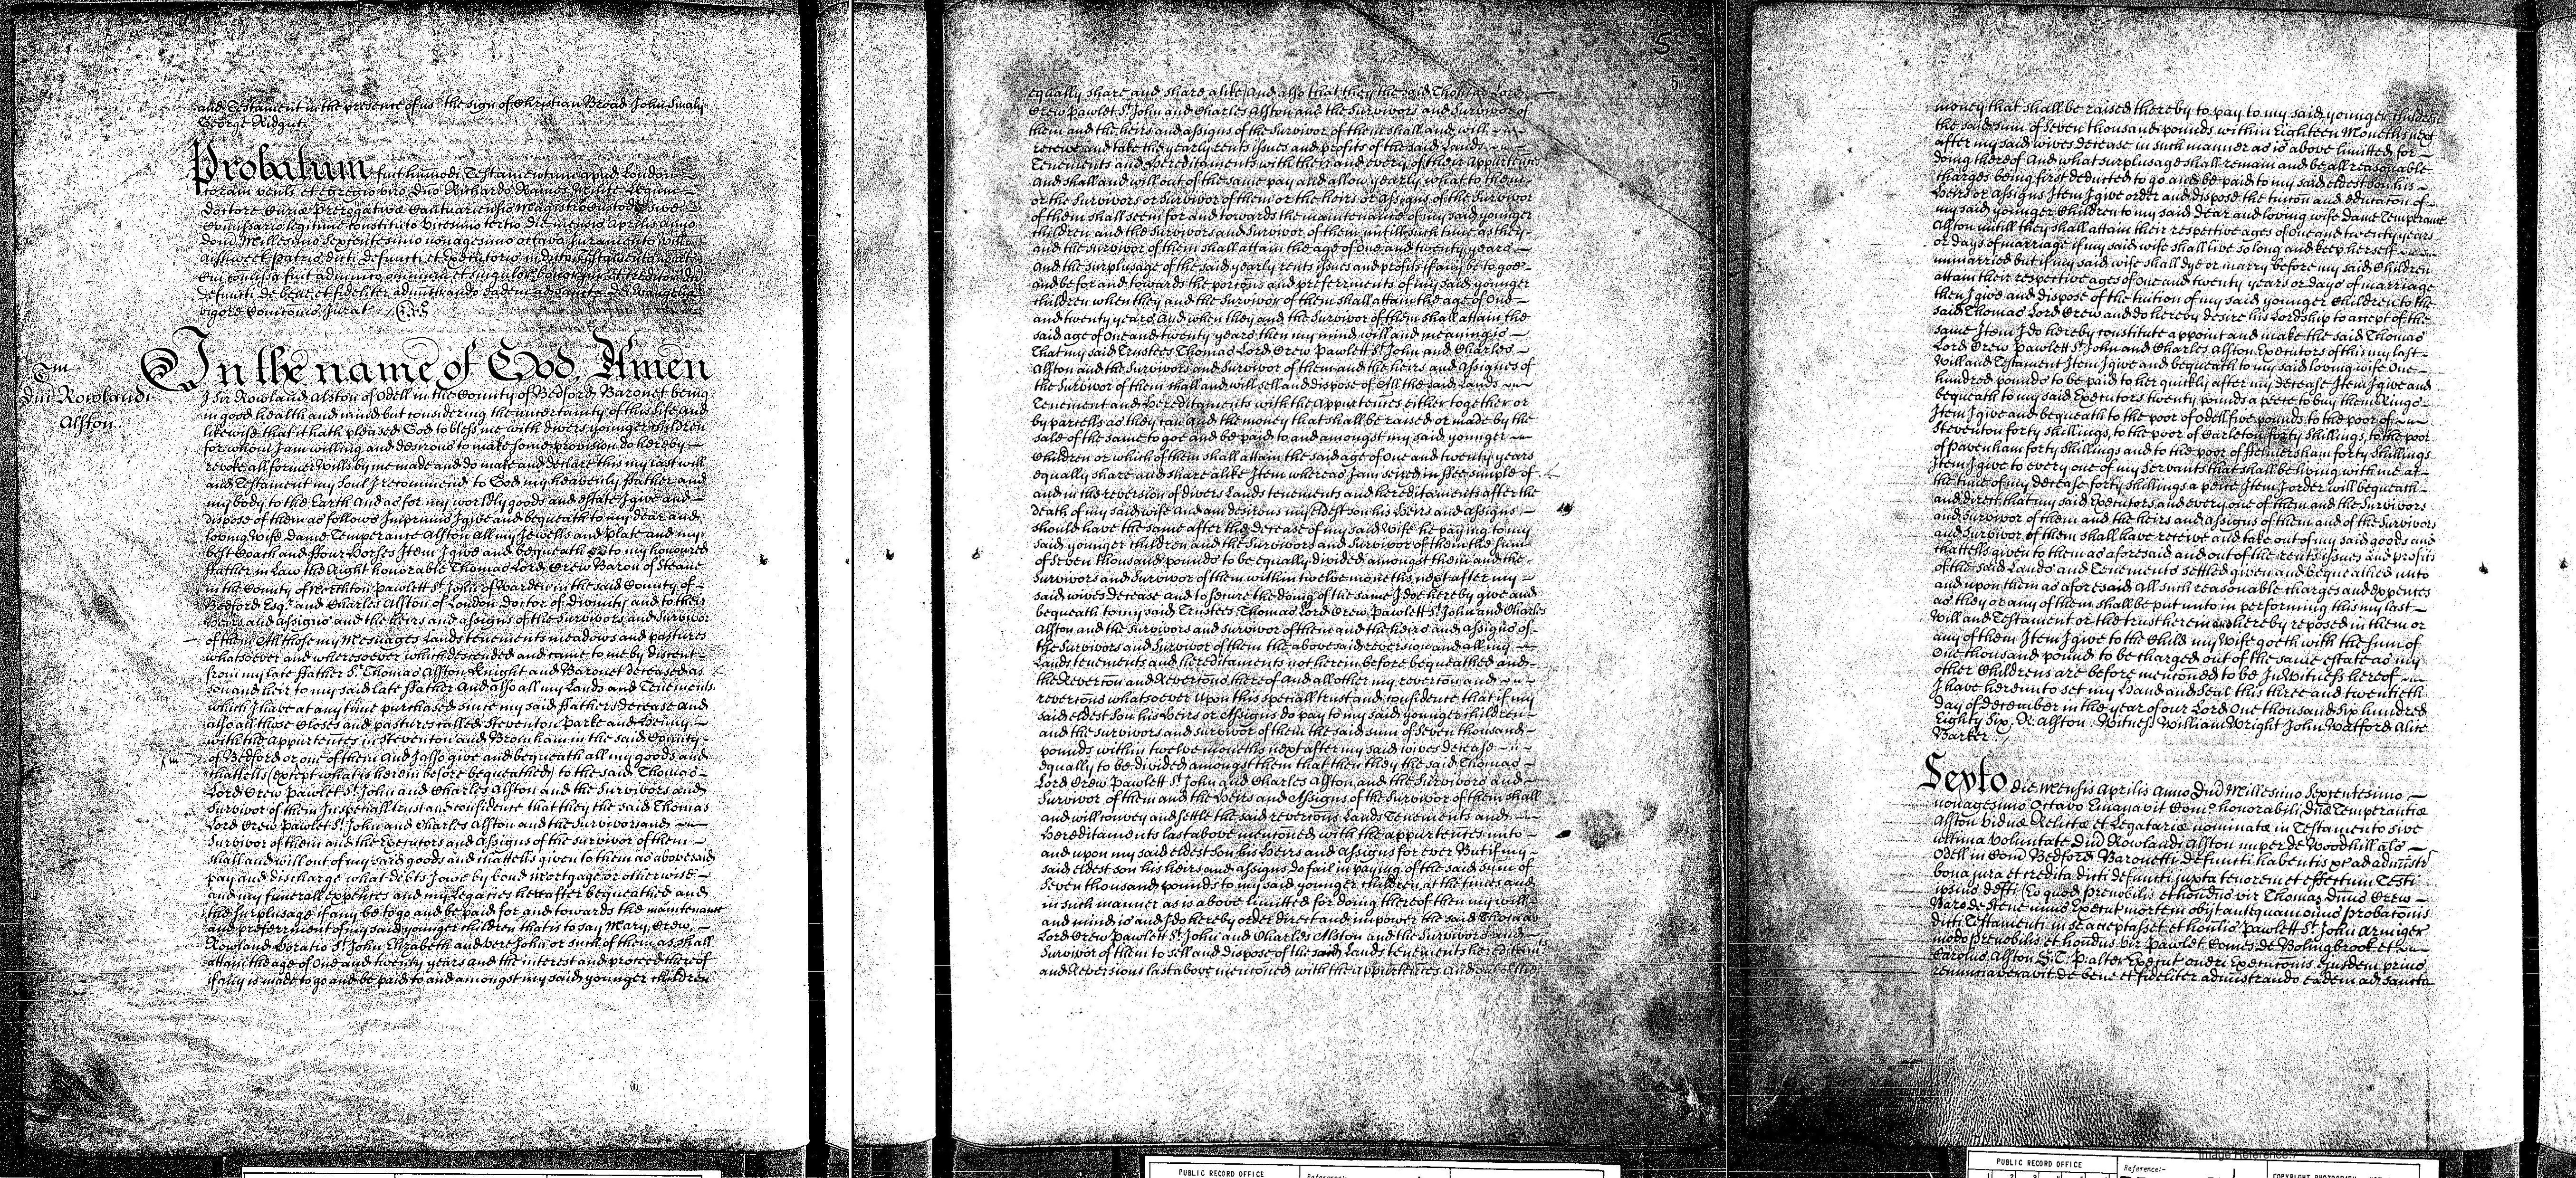 and Testament in the presence of us. the sign of Christian Broad John Smaly
George Ridgut.
Probatum fuit hum̄odi Testamentum apud London
coram venli et egregio viro Dño Richardo Raines Milite Legum
Doctore Curiæ Prerogativæ Cantuariensis Magistro Custode sive
Comissario legitime constituto vicesimo tertio die mensis Aprilis anno
Domi Millesimo Septentesimo nonagesimo octavo Juramento
patris dicti defuncti et Executoris in dicto Testamento nominat
Cui comissa fuit administo omnium et singulor bonor jur et creditor
defuncti de bene et fideliter administrando eadem ad Sancta Dei Evangelia
vigore Comicõnis Jurat. Exr̃
Tm
Dñi Rowlandi
Alston
In the name of God, Amen
I Sir Rowland Alston of Odell in the County of Bedford Baronet being
in good health and mind but considering the uncertainty of this life and
likewise that it hath pleased God to bless me with divers younger children
for whom I am willing and desirous to make some provision do hereby
revoke all former Wills by me made and do make and declare this my last will
and Testament my Soul I recommend to God my heavenly ffather and
my body to the Earth And as for my worldly goods and estate I give and
dispose of them as follows Imprimis I give and bequeath to my dear and
loving Wife Dame Temperance Alston all my Jewells and plate and my
best Coach and ffour Horses Item I give and bequeath to my honoured
ffather in Law the Right honorable Thomas Lord Crew Baron of Steane
in the County of Northton Pawlett St John of Warden in the said County of
Bedford Esqr and Charles Alston of London Doctor of Divinity and to their
Heirs and assigns and the heirs and assigns of the Survivors and Survivor
of them All those my Messuages Lands tenements meadows and pastures
whatsoever and wheresoever which descended and came to me by discent
from my late ffather Sr Thomas Alston Knight and Baronet deceased as
son and heir to my said late ffather And also all my Lands and Tenements
which I have at any time purchased since my said ffathers decease and
also all those Closes and pastures called Steventon Parke and Henny
with the appurtences in Steventon and Bromham in the said County
of Bedford or one of them And I also give and bequeath all my goods and
chattells (except what is herein before bequeathed) to the said Thomas
Lord Crew Pawlet St John and Charles Alston and the Survivors and
Survivor of them In speciall trust and confidence that they the said Thomas
Lord Crew Pawlet St John and Charles Alston and the Survivors and
Survivor of them and the Executors and Assigns of the survivor of them
shall and will out of my said goods and chattells given to them as abovesaid
pay and discharge what debts I owe by bond mortgage or otherwise
and my funerall expences and my Legacies hereafter bequeathed and
the surplusage if any be to go and be paid for and towards the maintenance
and preferrment of my said younger children that is to say Mary, Crew,
Rowland Horatio St John, Elizabeth and Vere John or such of them as shall
attain the age of One and twenty years and the interest and proceed thereof
if any is made to go and be paid to and amongst my said younger children
5
5
equally share and share alike And also that they the said Thomas Lord
Crew Pawlet St John and Charles Alston and the Survivors and Survivor of
them and the heirs and assigns of the Survivor of them shall and will
receive and take the yearly rents issues and profits of the said Lands
Tenements and Hereditaments with their and every of their Appurtences
And shall and will out of the same pay and allow yearly what to them
or the Survivors or Survivor of them or the heirs or assigns of the Survivor
of them shall seem for and towards the maintenance of my said younger
children and the Survivors and Survivor of them untill such time as they
and the survivor of them shall attain the age of One and twenty years
And the surplusage of the said yearly rents issues and profits if any be to goe
and be for and towards the porcõns and preferrments of my said younger
children when they and the Survivor of them shall attain the age of One
and twenty years And when they and the Survivor of them shall attain the
said age of One and twenty years then my mind will and meaning is
That my said Trustees Thomas Lord Crew Pawlett St John and Charles
Alston and the Survivors and Survivor of them and the heirs and assignes of
the Survivor of them shall and will sell and dispose of All the said Lands
Tenement and Hereditaments with the Appurtences either together or
by parcells as they can And the money that shall be raised or made by the
sale of the same to goe and be paid to and amongst my said younger
Children or which of them shall attain the said age of One and twenty years
equally share and share alike Item whereas I am seized in ffee simple of
and in the reversion of divers Lands tenements and hereditaments after the
death of my said wife and am desirous my eldest son his Heirs and assigns
should have the same after the decease of my said Wife he paying to my
said younger children and the Survivors and Survivor of them the sum
of Seven thousand pounds to be equally divided amongst them and the
Survivors and Survivor of them within twelve moneths next after my
said wives decease and to secure the doing of the same I doe hereby give and
bequeath to my said Trustees Thomas Lord Crew, Pawlett St John and Charles
Alston and the Survivors and Survivor of them and the heirs and assigns of
the Survivors and Survivor of them the abovesaid reversion and all my
Lands tenements and hereditaments not herein before bequeathed and
the Reverton and Revertons thereof and all other my revertion and
revertons whatsoever Upon this speciall trust and confidence that if my
said eldest son his Heirs or Assigns do pay to my said younger children
and the survivors and survivor of them the said sum of Seven thousand
pounds within twelve moneths next after my said wives decease
equally to be divided amongst them that then they the said Thomas
Lord Crew Pawlett St John and Charles Alston and the Survivors and
Survivor of them and the Heirs and Assigns of the Survivor of them shall
and will convey and settle the said revertons Lands Tenements and
Hereditaments last above mentioned with the appurtences unto
and upon my said eldest son his Heirs and assigns for ever But if my
said eldest son his heirs and assigns do fail in paying of the said sum of
Seven thousand pounds to my said younger children at the times and
in such manner as is above limitted for doing thereof then my will
and mind is and I do hereby order direct and impower the said Thomas
Lord Crew Pawlett St John and Charles Alston and the Survivors and
Survivor of them to sell and dispose of the said Lands tenements heredit̄amts
and Reversions last above mentioned with the appurtences And out of the
money that shall be raised thereby to pay to my said younger children
the said sum of Seven thousand pounds within Eighteen Moneths next
after my said wives decease in such manner as is above limitted for
doing thereof And what surplusage shall remain and be all reasonable
charges being first deducted to go and be paid to my said eldest son his
Heirs or assigns Item I give order and dispose the tuicõn and educatõn of
my said younger Children to my said Dear and loving wife Dame Temperance
Alston untill they shall attain their respective ages of One and twenty years
or days of marriage if my said wife shall live so long and keep herself
unmarried but if my said wife shall dye or marry before my said Children
attain their respective ages of One and twenty years or days of marriage
then I give and dispose of the tuition of my said younger Children to the
said Thomas Lord Crew and do hereby desire his Lordship to accept of the
same Item I do hereby constitute appoint and make the said Thomas
Lord Crew Pawlett St John and Charles Alston Executors of this my last
Will and Testament Item I give and bequeath to my said loving wife One
hundred pounds to be paid to her quickly after my decease Item I give and
bequeath to my said Executors twenty pounds a peece to buy them Rings
Item I give and bequeath to the poor of Odell five pounds to the poor of
Steventon forty shillings, to the poor of Carleton forty shillings, to the poor
of Pavenham forty shillings and to the poor of ffelmersham forty shillings
Item I give to every one of my Servants that shall be living with me at
the time of my decease forty shillings a peice Item I order will bequeath
and direct that my said Executors and every one of them and the Survivors
and Survivor of them and the heirs and assigns of them and of the Survivors
and Survivor of them shall have receive and take out of my said goods and
chattells given to them as aforesaid and out of the rents issues and profits
of the said Lands and Tenements settled given and bequeathed unto
and upon them as aforesaid All such reasonable charges and expences
as they or any of them shall be put unto in performing this my last
Will and Testament or the trust herein and hereby reposed in them or
any of them Item I give to the Child my Wife goeth with the sum of
One thousand pound to be charged out of the same estate as my
other Childrens are before menc̃oned to be In Witness hereof
I have hereunto set my Hand and Seal this three and twentieth
day of December in the year of our Lord One thousand six hundred
Eighty Six. R: Alston: Witness William Wright John Watford Alice
Barker.
Sexto die Mensis Aprilis Anno Dñi Millesimo Septentesimo
nonagesimo Octavo Emanavit Como honorabili Dñæ Temperantiæ
Alston Viduæ Relictæ et Legatariæ nominatæ in Testamento sive
ultima Voluntate Dñi Rowlandi Alston nuper de Woodhill als
Odell in Com̄ Bedford Baronetti defuncti habentis &c ad administr
bona jura et credita dicti defuncti juxta tenorem et effectum Testi
ipsius defti Eo quod prenobilis et honor̃dus vir Thomas Dñus Crew
Baro de Stene unus Executorũ mortem obijt antequam onus Probatõnis
dicti Testamenti in se acceptasset et honlis Pawlett St John Armiger
modo prenobilis et honor̃dus vir Pawlet Comes de Bolingbrook et
Carolus Alston S.T.P. alter Executor̃ oneri Executõnis ejusdem prius
renunciaveravit de bene et fideliter administrando eadem ad Sancta
PUBLIC RECORD OFFICE
Reference:-
PUBLIC RECORD OFFICE
Reference:-
Image Reference:7
1 2 3 4 5 6
COPYRIGHT PHOTOGRAPH